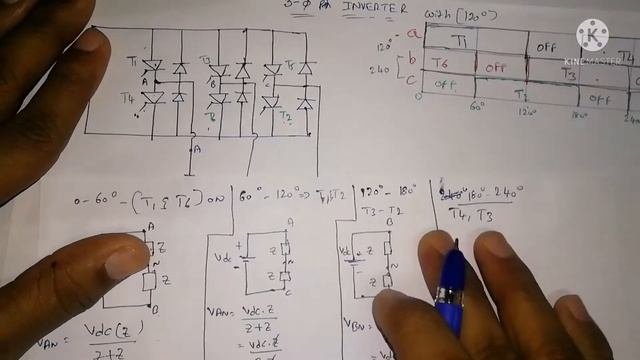 3-Φ INVERTER with [120°]
KINEMASTER
120° - a T1 OFF T4
240 b T6 OFF T3
c OFF OFF
0 60° 120° 180°
T1 T3 T5
A B C
T4 T6 T2
A
0-60° - (T1 & T6) ON
60° - 120° ⇒ T1, T2
120° - 180°
T3 - T2
180° - 240°
T4, T3
A
Z
Z
B
A
Vdc
Z
N
Z
C
B
Vdc
Z
N
Z
VAN = Vdc(Z)
Z+Z
VAN = Vdc.Z
Z+Z
= Vdc.Z
VBN =